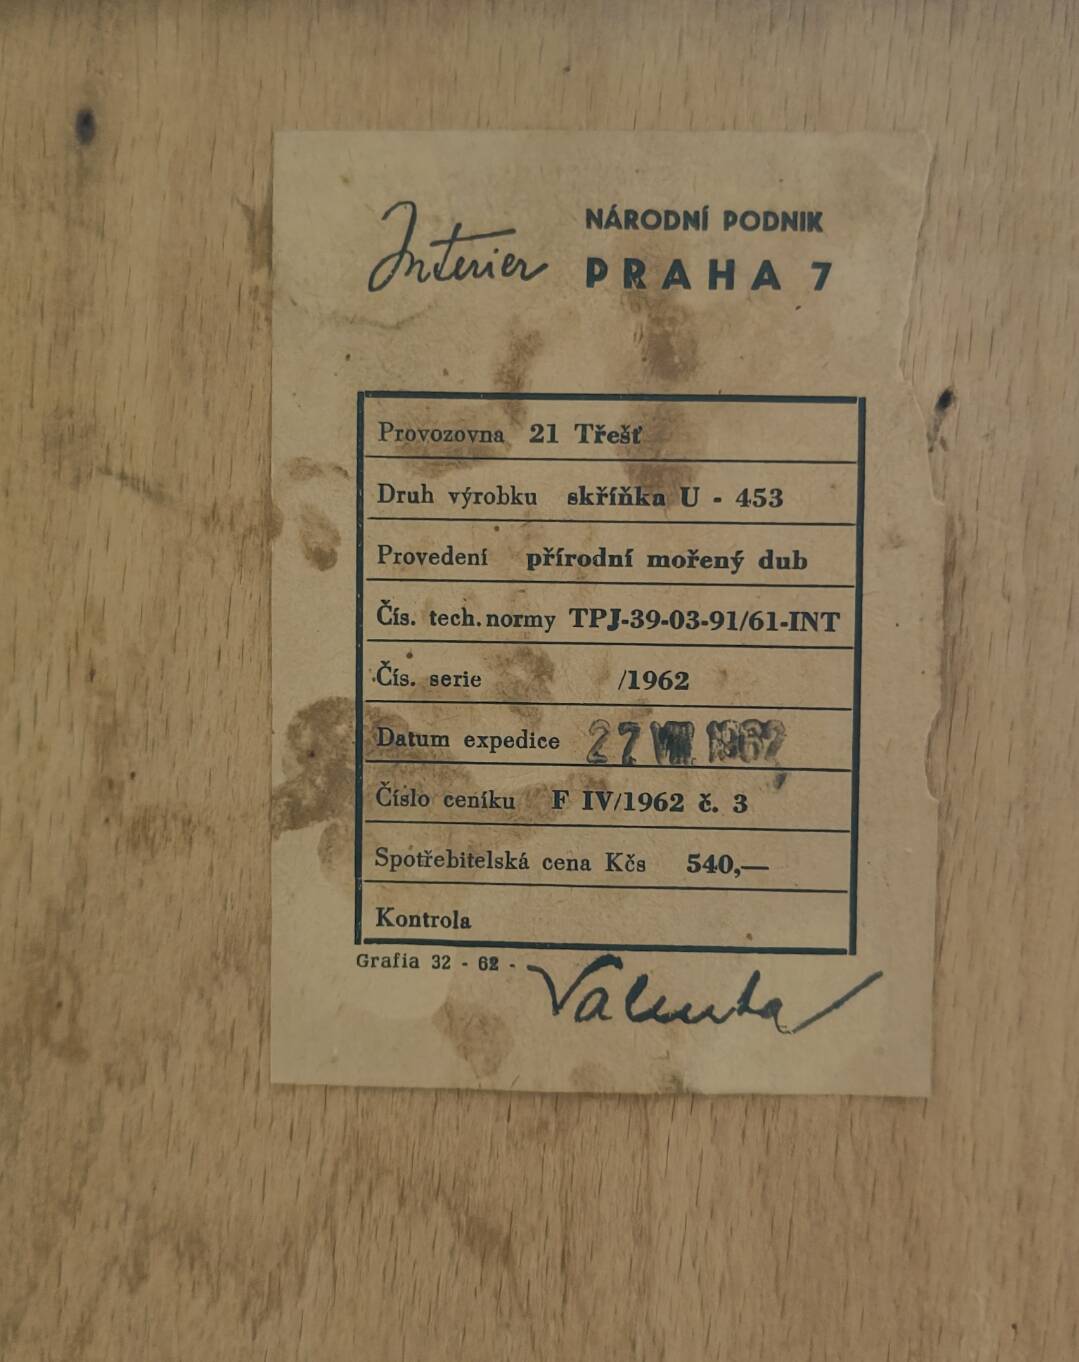 Interier
NÁRODNÍ PODNIK
PRAHA 7
Provozovna 21 Třešť
Druh výrobku skříňka U - 453
Provedení přírodní mořený dub
Čís. tech. normy TPJ-39-03-91/61-INT
Čís. serie /1962
Datum expedice 27 VIII 1962
Číslo ceníku F IV/1962 č. 3
Spotřebitelská cena Kčs 540,—
Kontrola
Grafia 32 - 62 -
Valenta